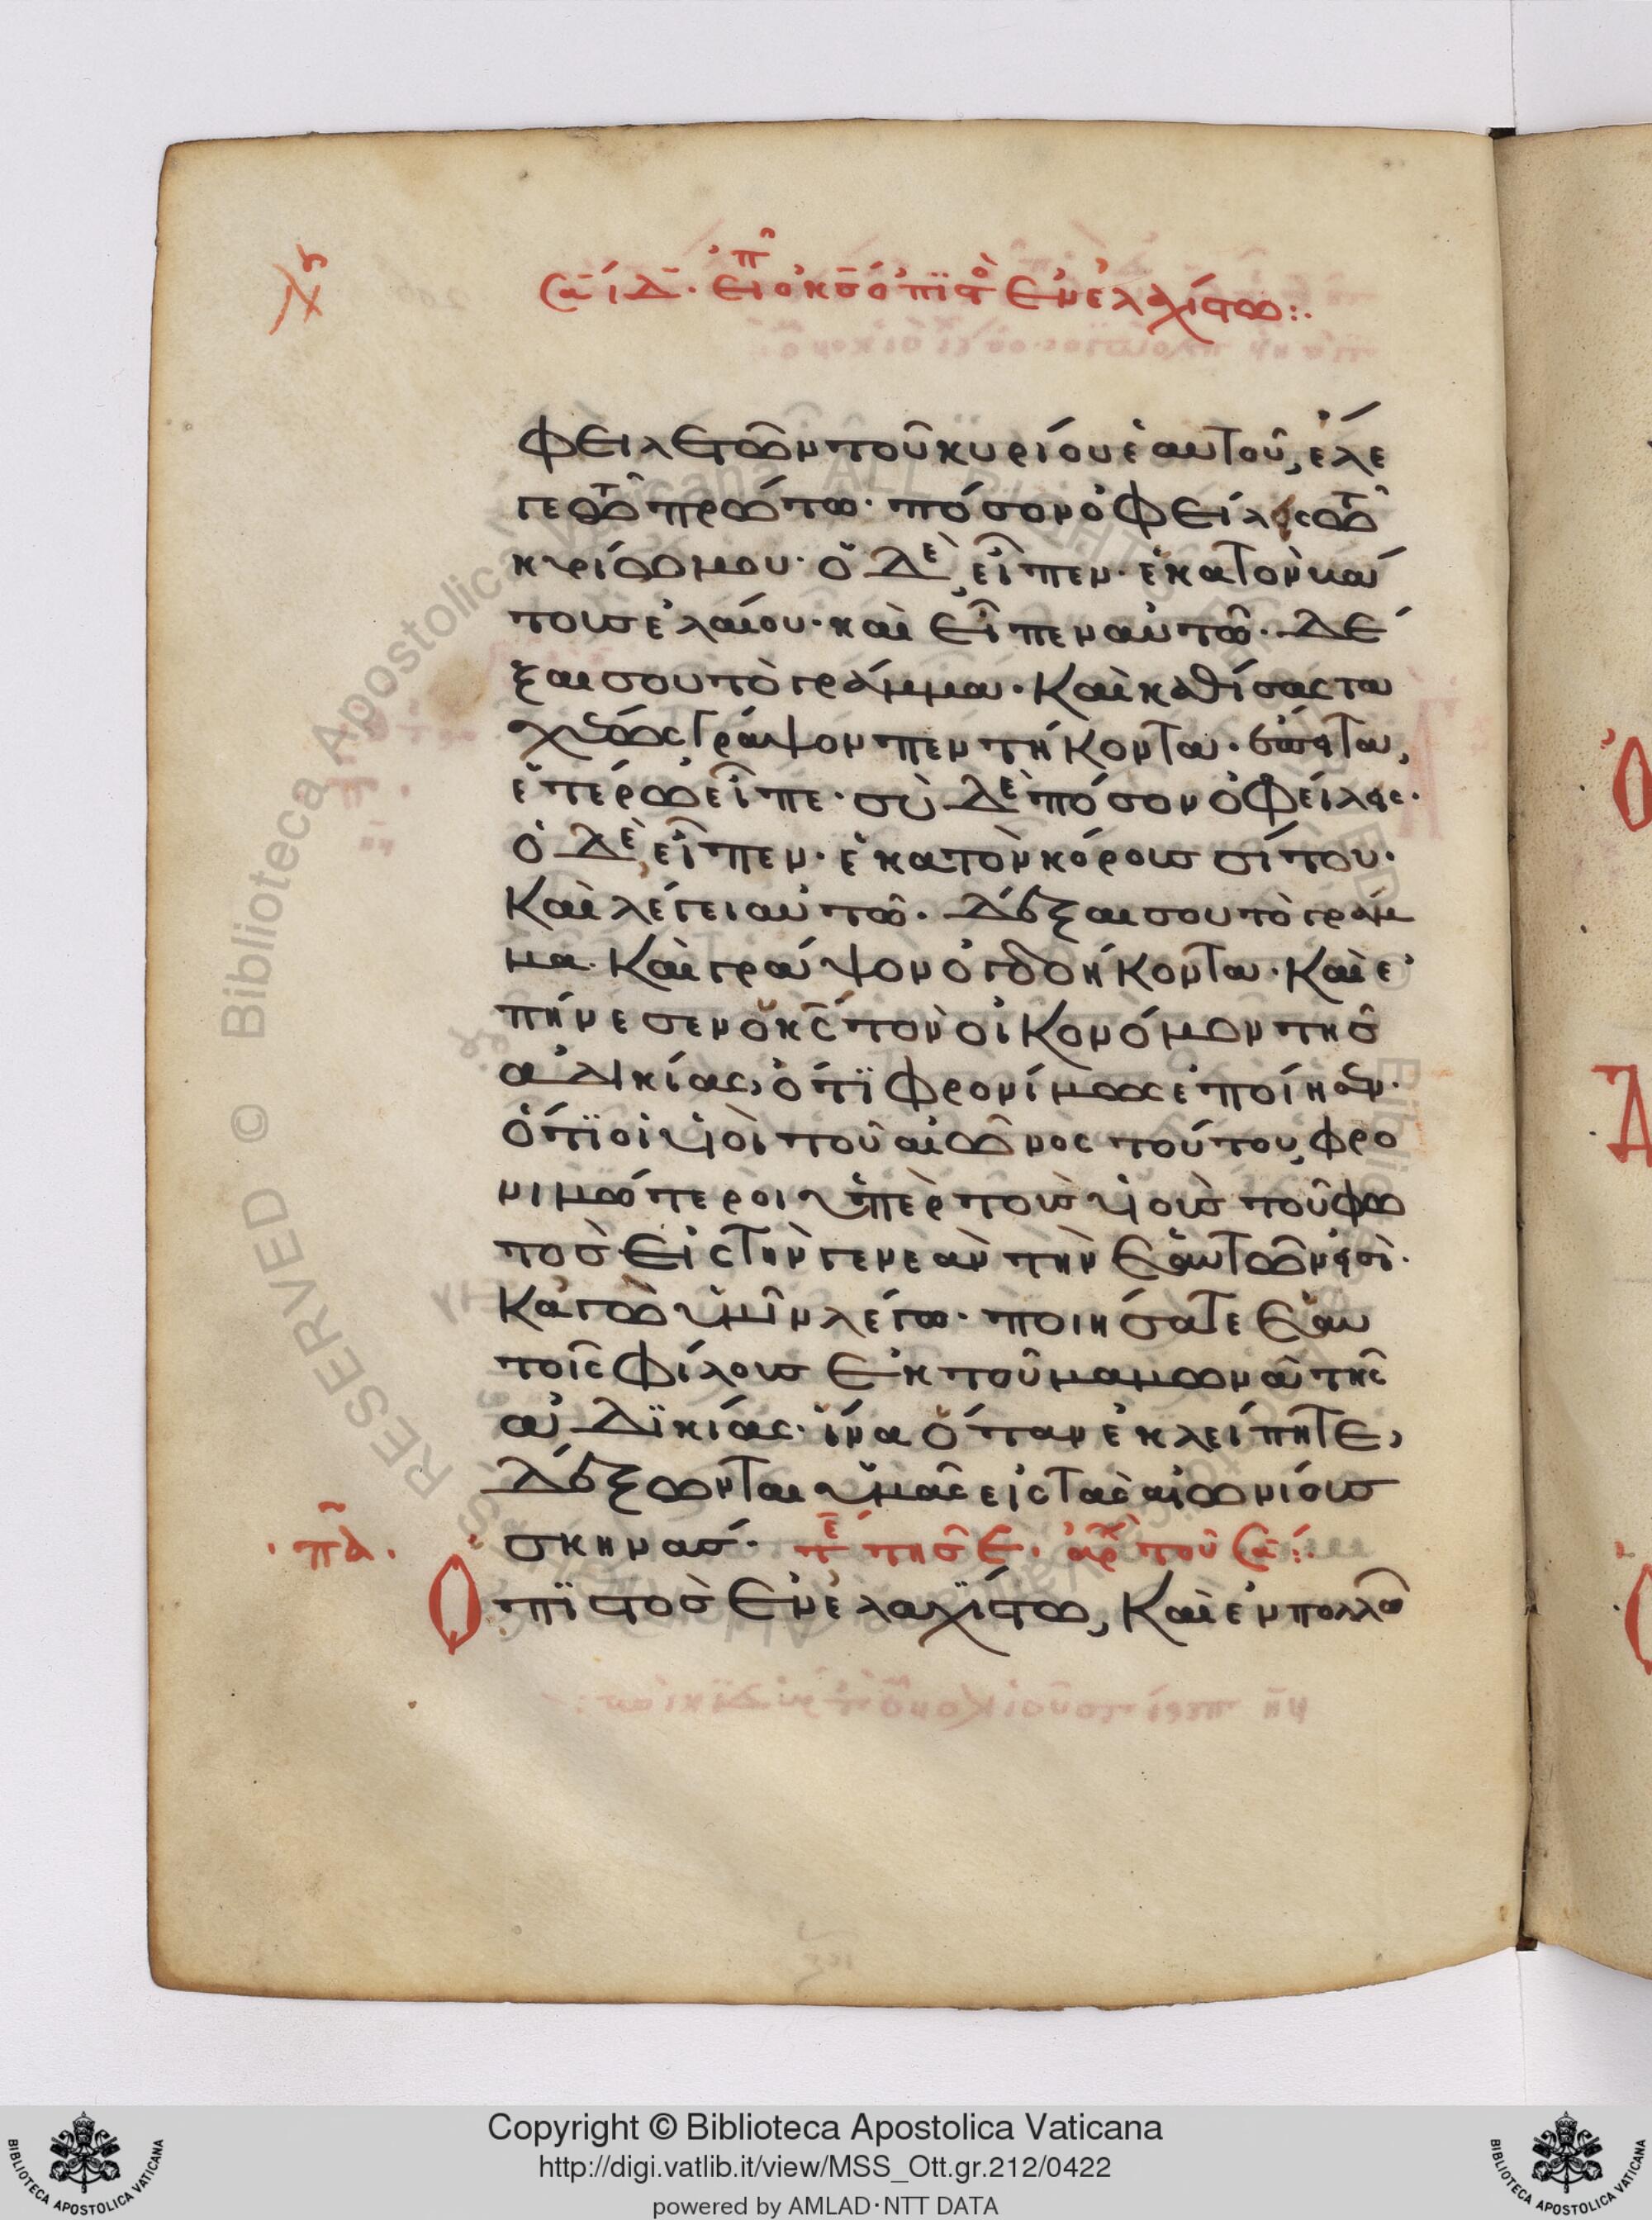 Σα ιδ. εἶπ ὁ κς ὁ πιστὸ ἐν ἐλαχίστω:.
φειλετῶν τοῦ κυρίου ἑαυτοῦ, ἔλε
γε τῶ πρώτω· πόσον ὀφείλεις τῶ
κυρίω μου· ὁ δὲ, εἶπεν· ἑκατὸν κά
τους ἐλαίου· καὶ εἶπεν αὐτῶ· δέ
ξαι σου τὸ γράμμα· καὶ καθίσας τα
χέως γράψον πεντήκοντα· ἔπειτα,
ἑτέρω εἶπε· σὺ δὲ πόσον ὀφείλεις·
ὁ δὲ, εἶπεν· ἑκατὸν κόρους σίτου·
καὶ λέγει αὐτῶ· δέξαι σου τὸ γράμ
μα· καὶ γράψον ὀγδοήκοντα· καὶ ἐ
πήνεσεν ὁ κς τὸν οἰκονόμον τῆς
ἀδικίας, ὅτι φρονίμως ἐποίησεν·
ὅτι οἱ υἱοὶ τοῦ αἰῶνος τούτου, φρο
νιμώτεροι ὑπὲρ τοὺς υἱοὺς τοῦ φω
τὸς εἰς τὴν γενεὰν τὴν ἑαυτῶν εἰσὶ·
κἀγὼ ὑμῖν λέγω· ποιήσατε ἑαυ
τοῖς φίλους ἐκ τοῦ μαμωνᾶ τῆς
ἀδικίας· ἵνα ὅταν ἐκλείπητε,
δέξωνται ὑμᾶς εἰς τὰς αἰωνίους
σκηνάς· τε τῆς ε. ἀρχ τοῦ Σα:.
πδ.
Ὁ πιστὸς ἐν ἐλαχίστω, καὶ ἐν πολλῶ
Copyright © Biblioteca Apostolica Vaticana
http://digi.vatlib.it/view/MSS_Ott.gr.212/0422
powered by AMLAD·NTT DATA